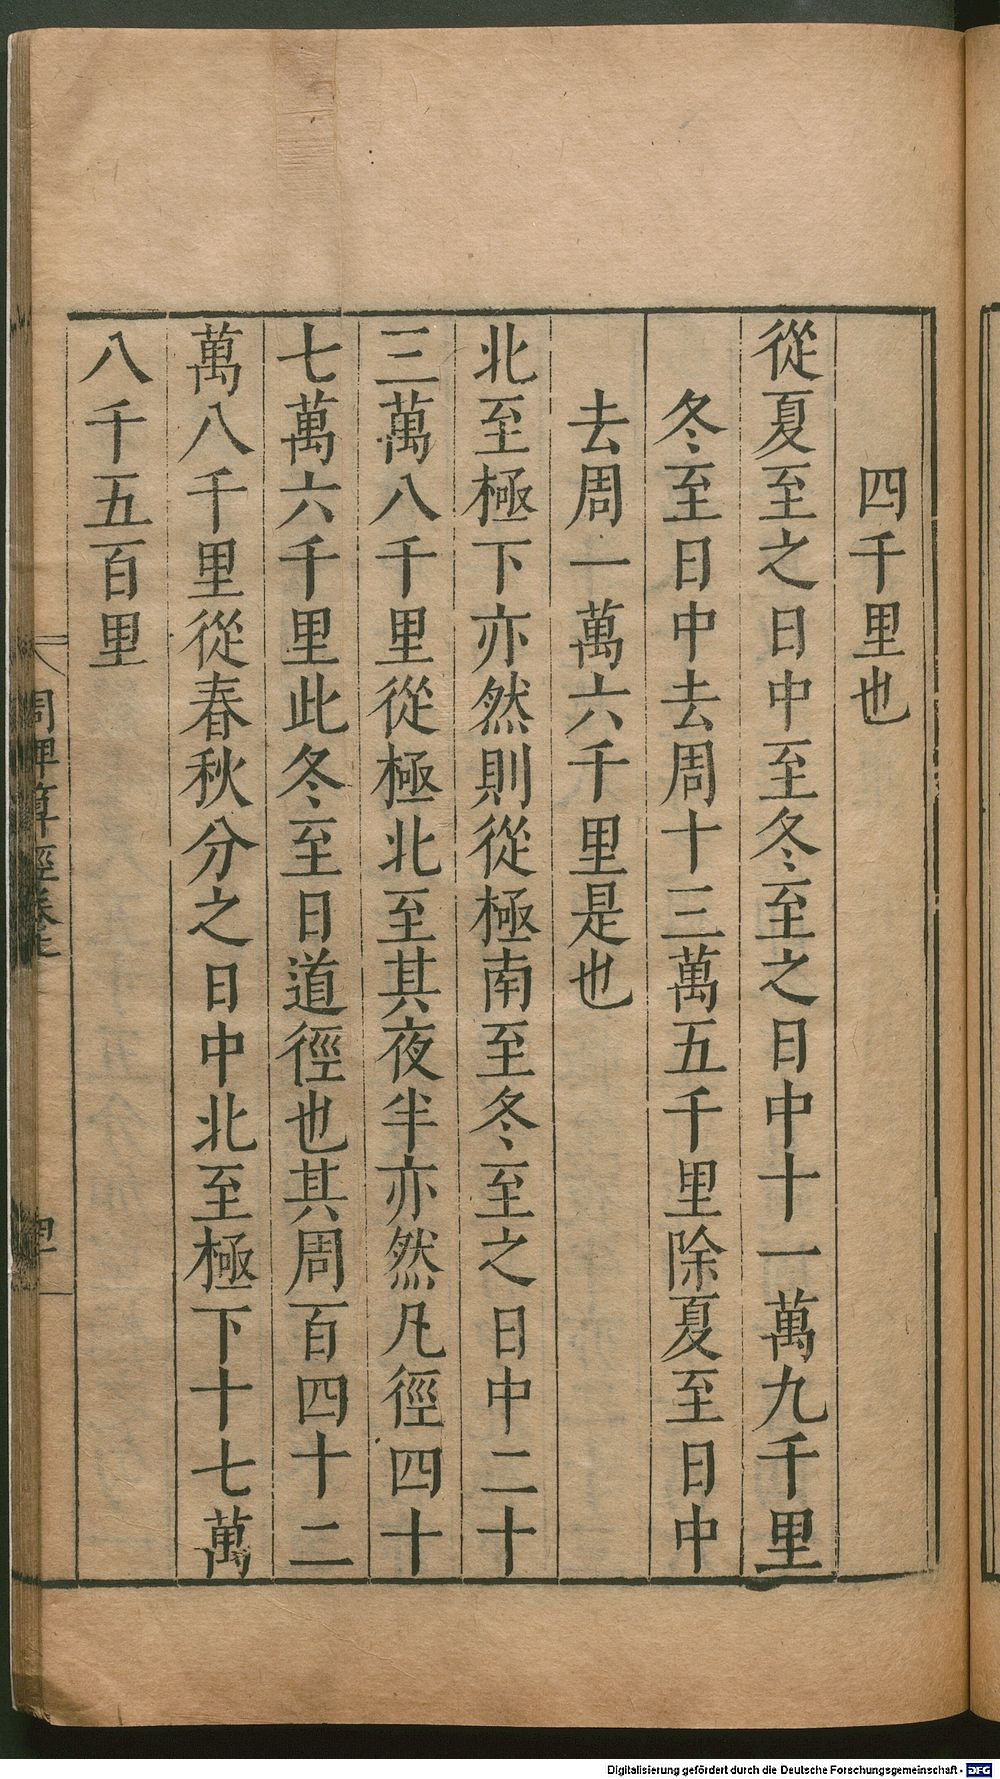 四千里也
從夏至之日中至冬至之日中十一萬九千里
冬至日中去周十三萬五千里除夏至日中
去周一萬六千里是也
北至極下亦然則從極南至冬至之日中二十
三萬八千里從極北至其夜半亦然凡徑四十
七萬六千里此冬至日道徑也其周百四十二
萬八千里從春秋分之日中北至極下十七萬
八千五百里
周髀算經卷上
Digitalisierung gefördert durch die Deutsche Forschungsgemeinschaft - DFG